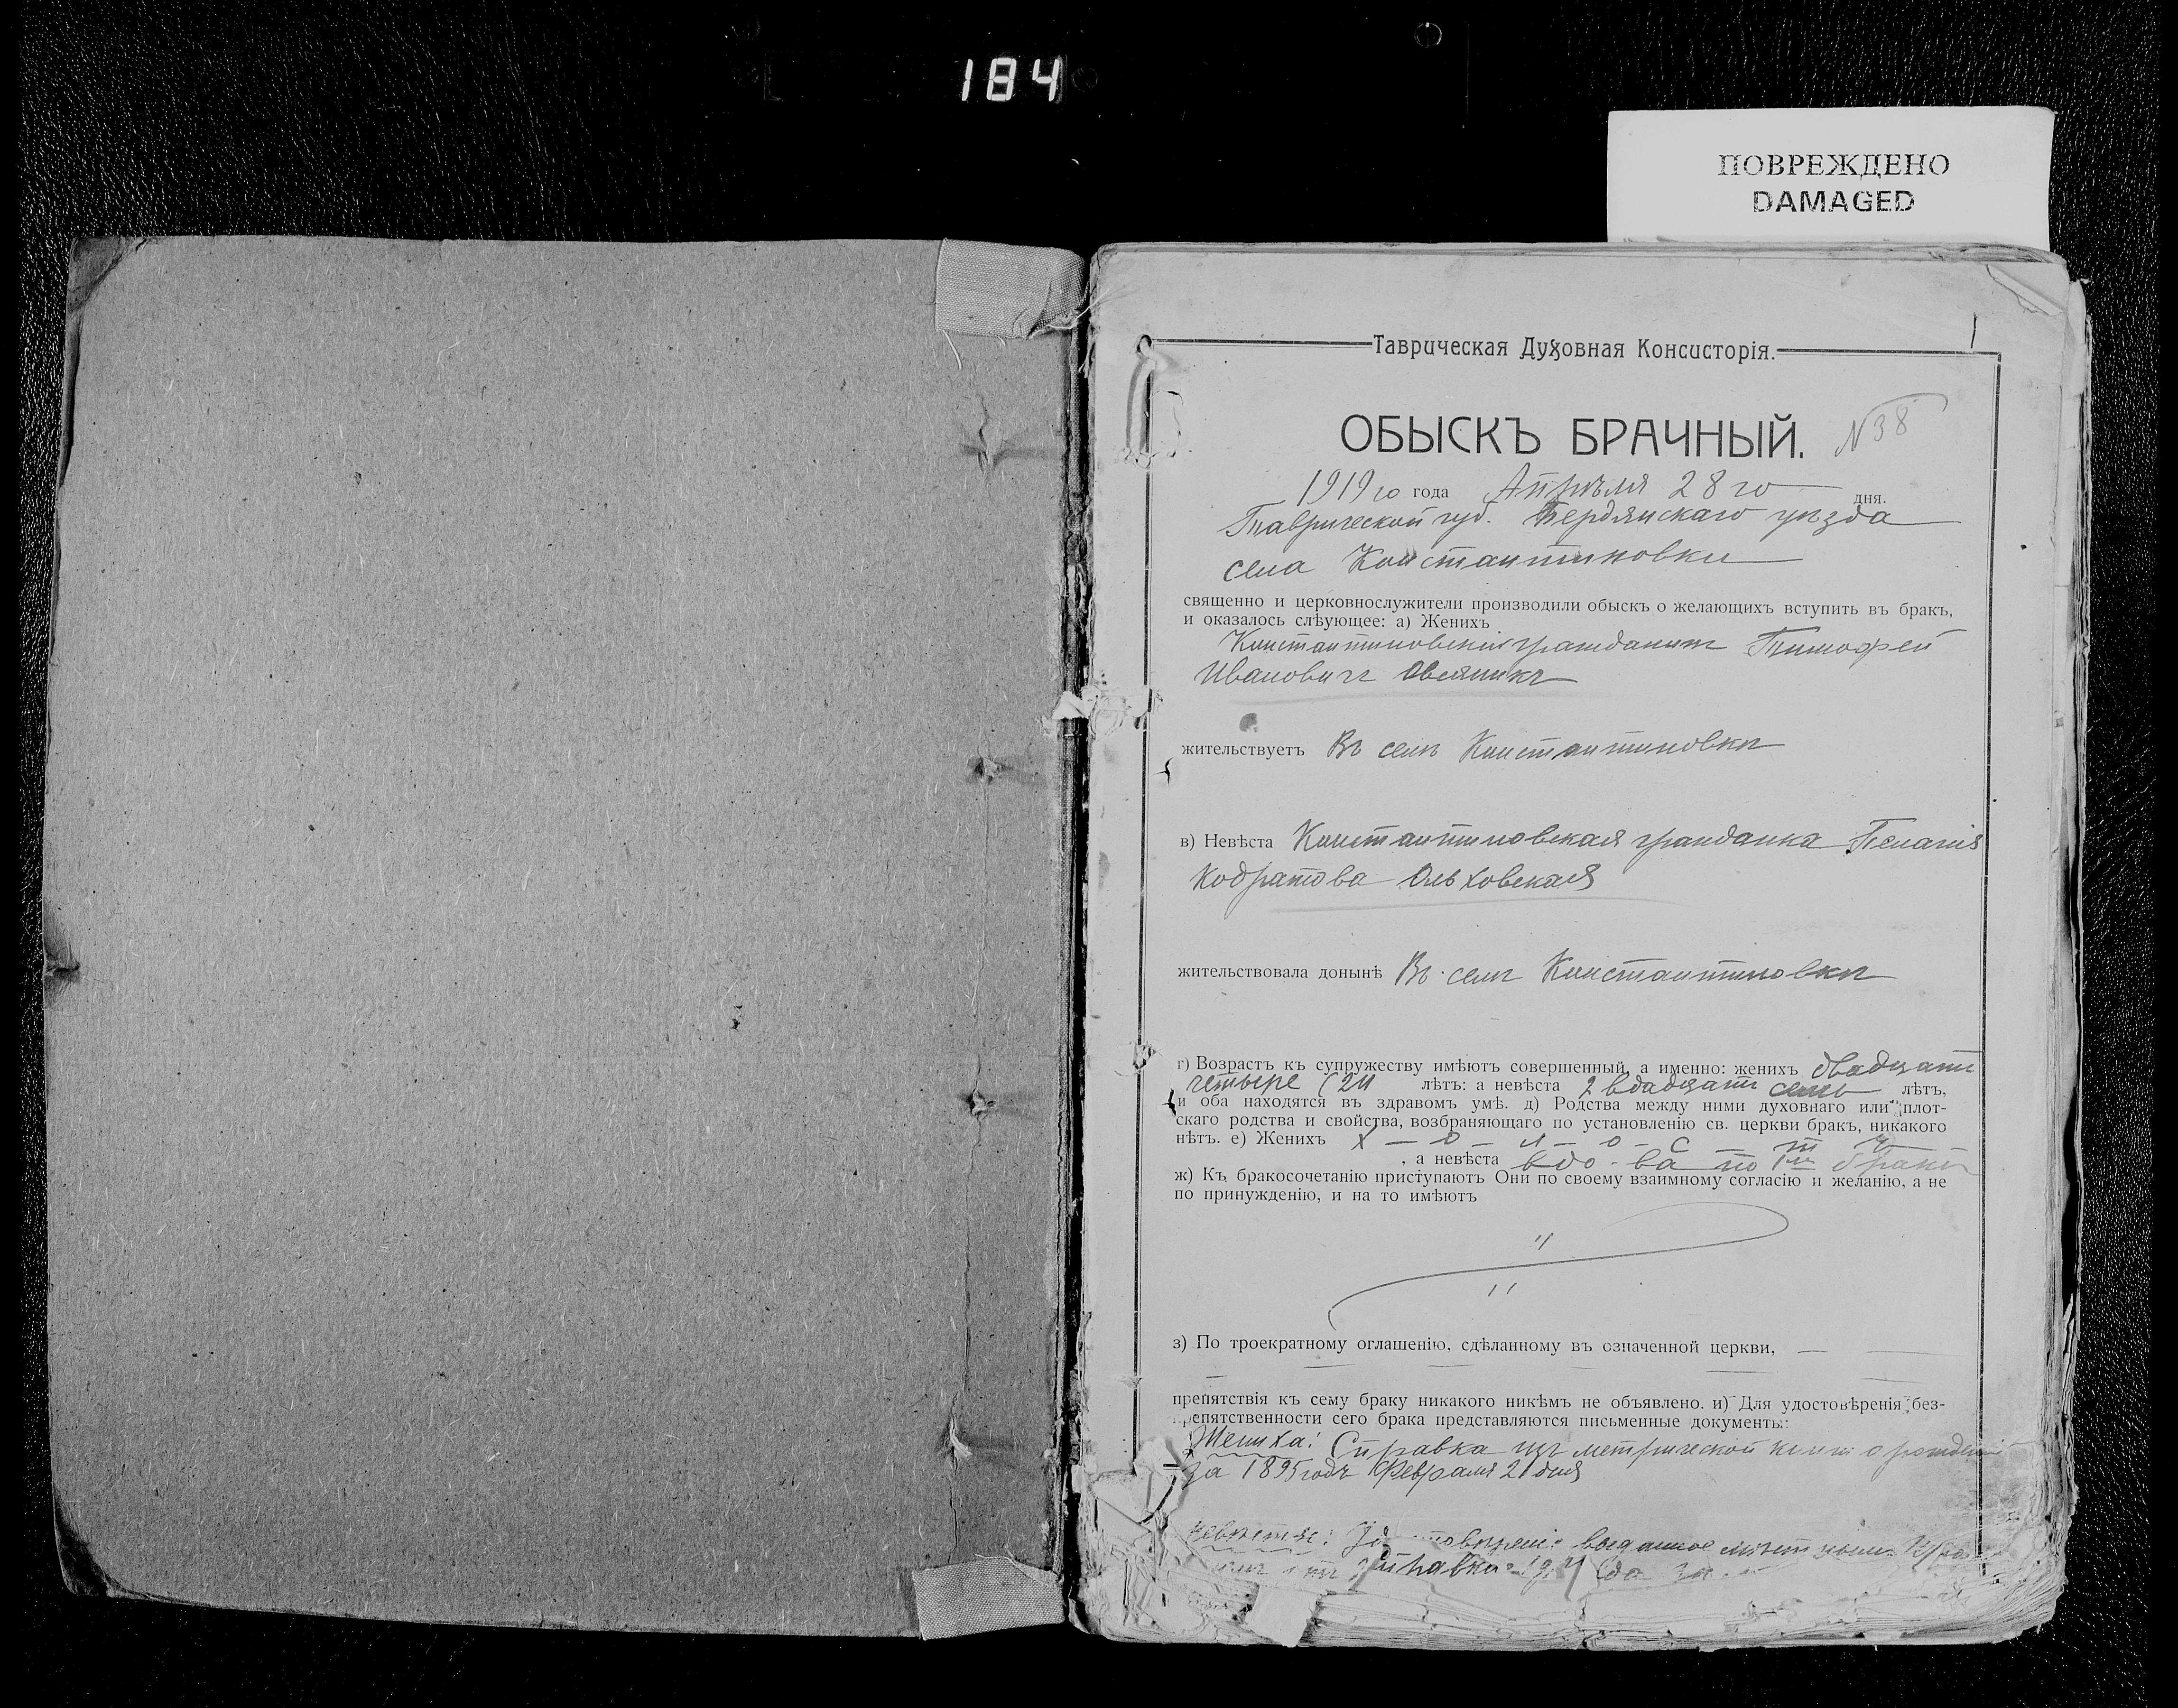 184
ПОВРЕЖДЕНО
DAMAGED
1
Таврическая Духовная Консисторія.
ОБЫСКЪ БРАЧНЫЙ. N38
1919го года Апрѣля 28го дня.
Таврической губ. Бердянскаго уѣзда
села Константиновки
священно и церковнослужители производили обыскъ о желающихъ вступить въ бракъ,
и оказалось слѣующее: а) Женихъ
Константиновскій гражданинъ Тимофей
Ивановичъ Овсяникъ
жительствуетъ Въ селѣ Константиновкѣ
в) Невѣста Константиновская гражданка Пелагія
Кодратова Ольховская
жительствовала донынѣ Въ селѣ Константиновкѣ
г) Возрастъ къ супружеству имѣютъ совершенный, а именно: женихъ двадцати
четыре (24 лѣтъ: а невѣста вдадцати семь лѣтъ,
и оба находятся въ здравомъ умѣ. д) Родства между ними духовнаго или плот-
скаго родства и свойства, возбраняющаго по установленію св. церкви бракъ, никакого
нѣтъ. е) Женихъ х – о – л – о – с – т – ъ
, а невѣста вдо - ва по 1м бракѣ
ж) Къ бракосочетанію приступаютъ Они по своему взаимному согласію и желанію, а не
по принужденію, и на то имѣютъ
" "
з) По троекратному оглашенію, сдѣланному въ означенной церкви,
препятствія къ сему браку никакого никѣмъ не объявлено. и) Для удостовѣренія без-
препятственности сего брака представляются письменные документы:
Жениха: Справка изъ метрической книги о рожденіи
за 1895 годъ Февраля 21 дня
Невѣсты: выданное